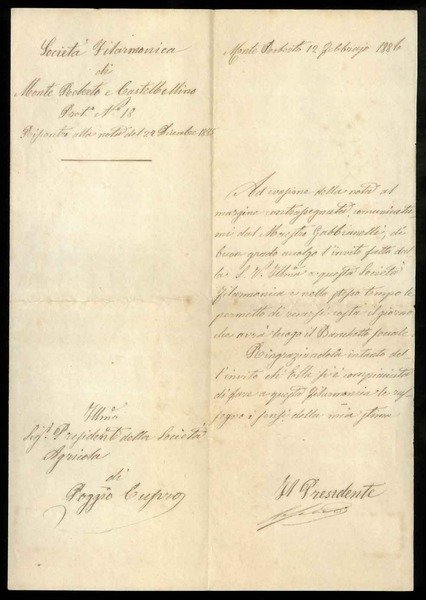 Società Filarmonica
di
Monte Roberto e Castelbellino
Prot.º Nº 18
Risposta alla nota del 24 Dicembre 1885
Monte Roberto 12 Febbrajo 1886
Ad evasione della nota al
margine contrassegnata, comunicata
mi dal Maestro Gabbianelli, di
buon grado accolgo l'invito fatto dal
la S. V. Ill̃ma a questa Società
Filarmonica e nello stesso tempo le
permetto di recarsi costà il giorno
che avrà luogo il Banchetto sociale.
Ringraziandola intanto del
l'invito che Ella si è compiaciuta
di fare a questa Filarmonia le ras
segno i sensi della mia stima
Ill̃mo
Sig.r Presidente della Società
Agricola
di
Poggio Cupro
Il Presidente